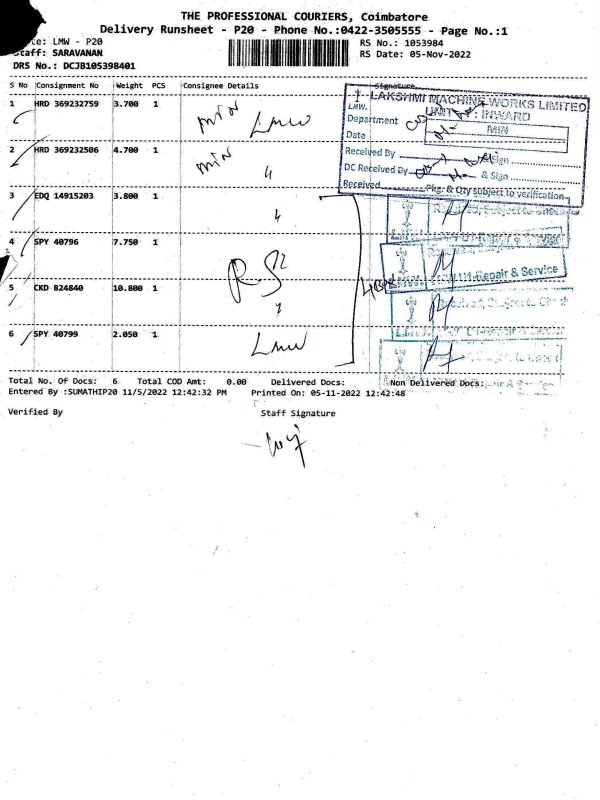 THE PROFESSIONAL COURIERS, Coimbatore
Delivery Runsheet - P20 - Phone No.:0422-3505555 - Page No.:1
LMW - P20
RS No.: 1053984
Staff: SARAVANAN
RS Date: 05-Nov-2022
DRS No.: DCJB105398401
S No Consignment No Weight PCS Consignee Details Signature
1 HRD 369232759 3.700 1 MIN LMW
2 HRD 369232506 4.700 1 MIN "
3 EDQ 14915203 3.800 1 "
4 SPY 40796 7.750 1
5 CKD 824840 10.800 1 "
6 SPY 40799 2.050 1 LMW
LAKSHMI MACHINE WORKS LIMITED
LMW. UNIT : INWARD
Department MIN
Date
Received By Sign
DC Received By & Sign
Received Pkg. & Qty subject to verification
LMW U1-Repair & Service
Total No. Of Docs: 6 Total COD Amt: 0.00 Delivered Docs: Non Delivered Docs:
Entered By :SUMATHIP20 11/5/2022 12:42:32 PM Printed On: 05-11-2022 12:42:48
Verified By Staff Signature